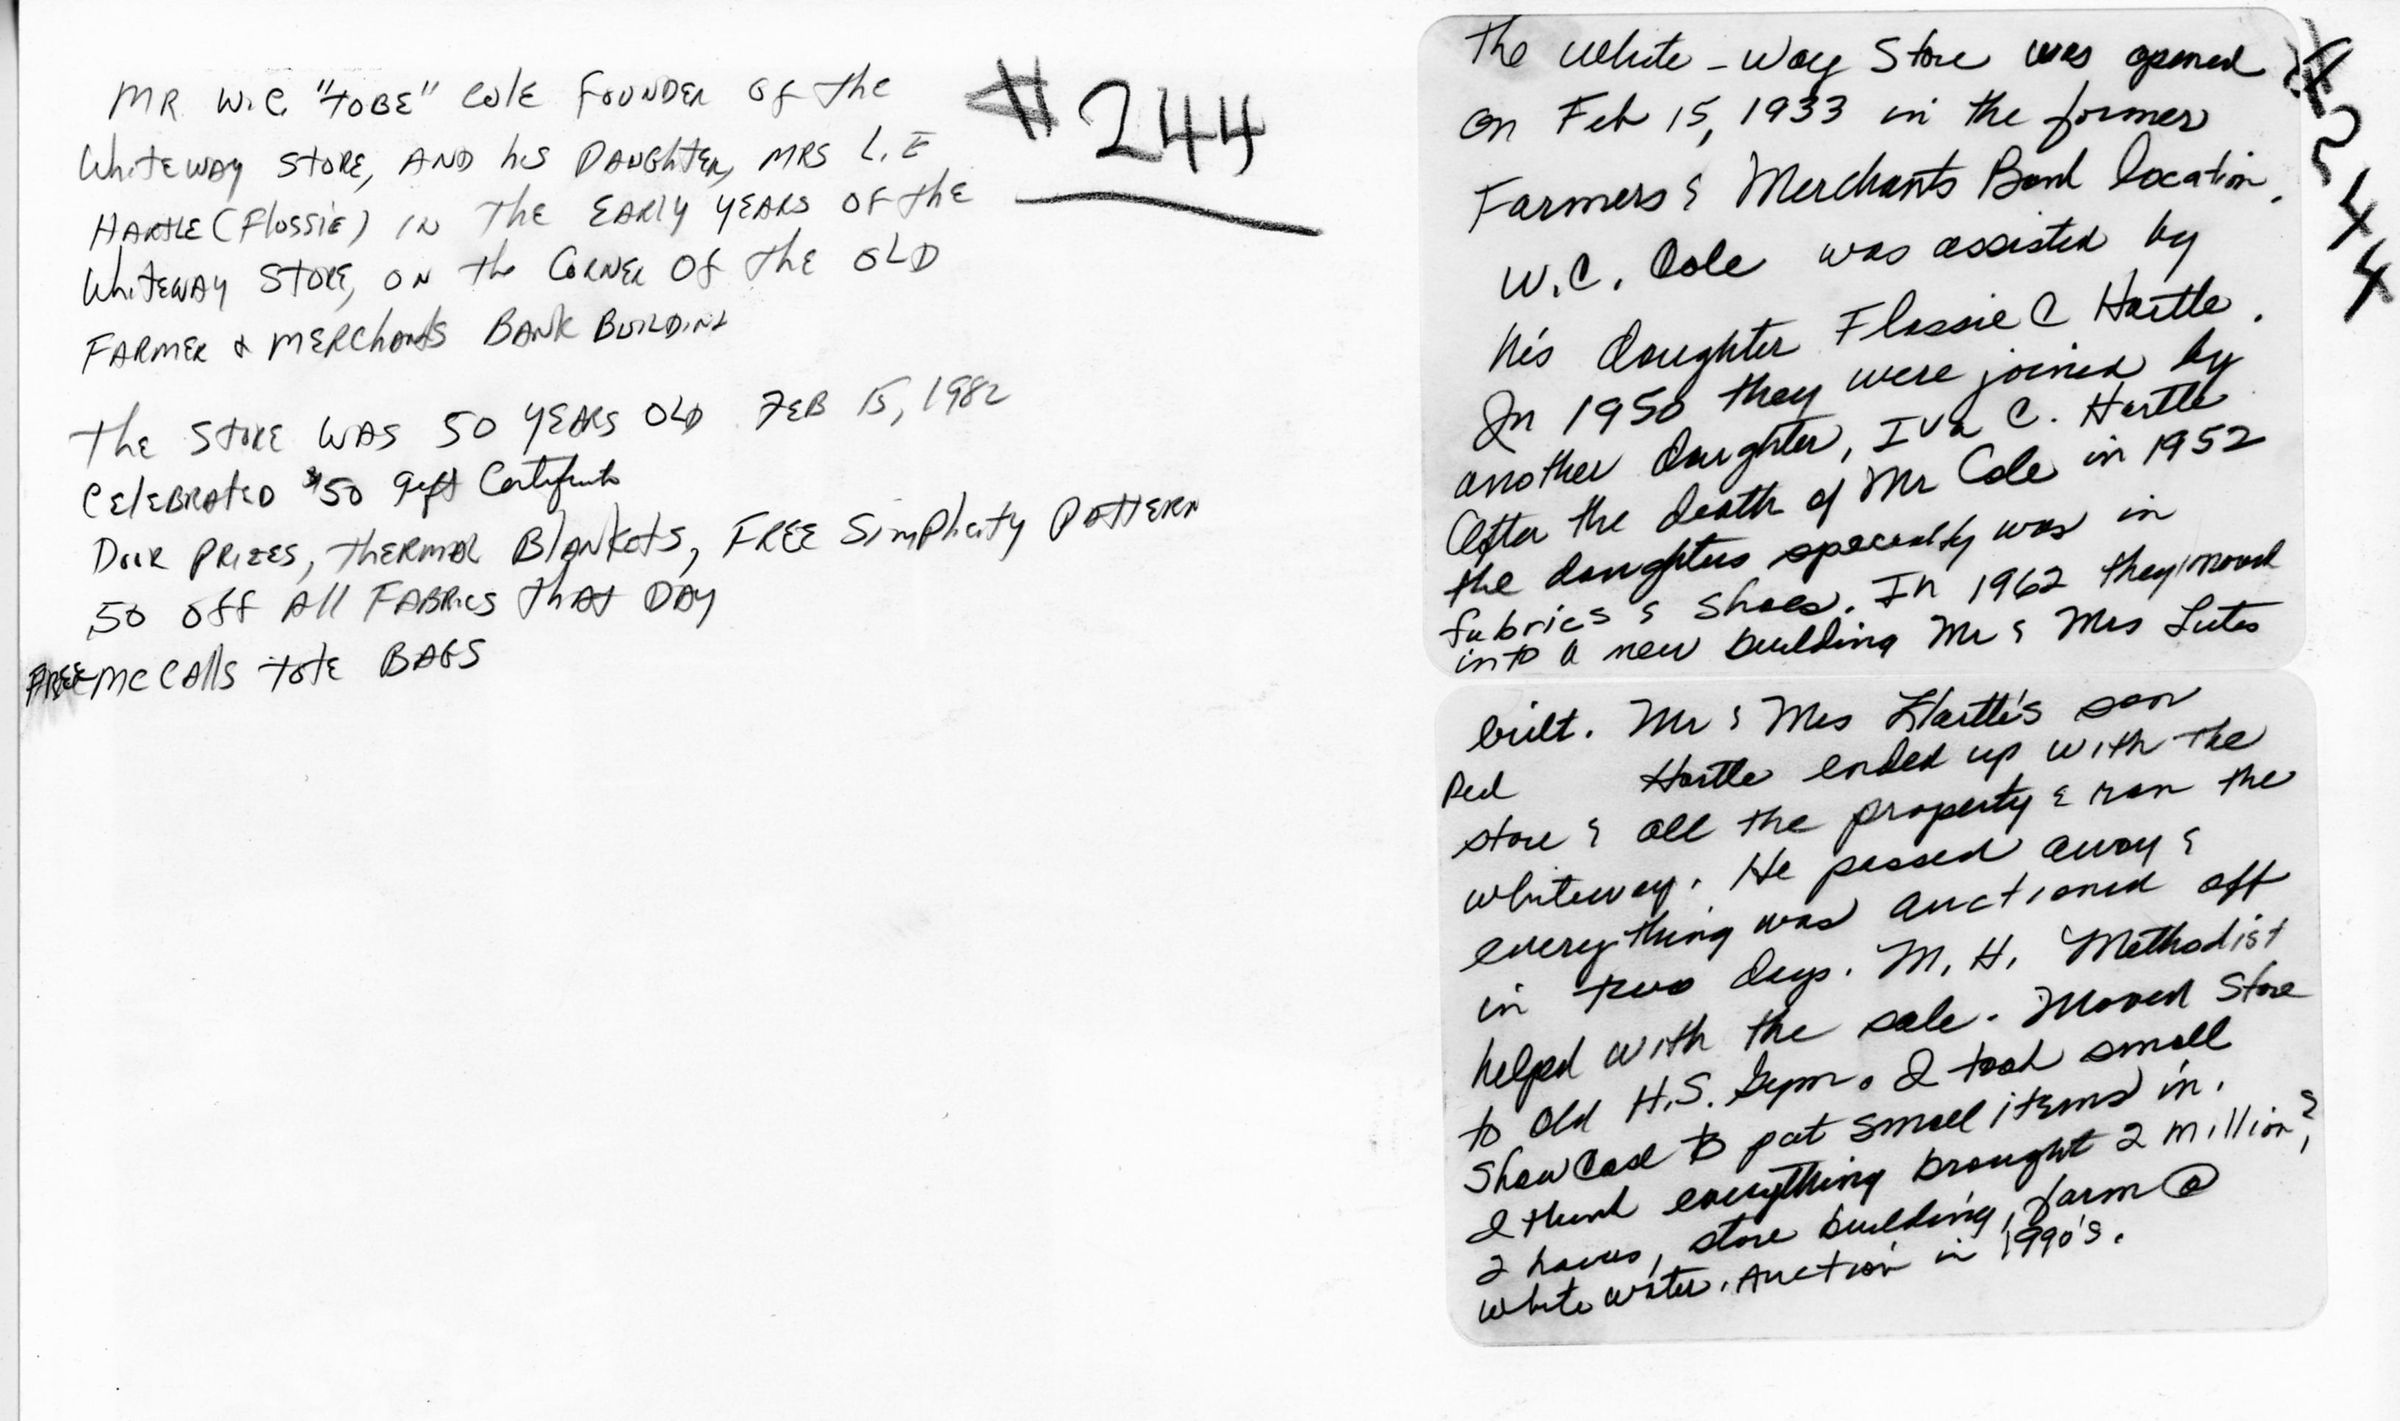 MR W.C. "TOBE" COLE FOUNDER OF THE
WHITEWAY STORE, AND his DAUGHTER, MRS L.E
HARTLE (Flossie) IN THE EARLY YEARS OF THE
WHITEWAY STORE, ON the CORNER OF THE OLD
FARMER & MERChants BANK BUILDING
#244
THE STORE WAS 50 YEARS OLD FEB 15, 1982
CELEBRATED $50 gift Certificate
Door PRIZES, THERMAL BlanKets, FREE Simplicity PATTERN
.50 OFF All FABRICS THAT DAY
FREE McCAlls TOTE BAGS
The White-Way Store was opened
on Feb 15, 1933 in the former
Farmers & Merchants Bank location.
W.C. Cole was assisted by
his daughter Flossie C Hartle.
In 1950 they were joined by
another daughter, Iva C. Hartle
After the death of Mr Cole in 1952
the daughters specialty was in
fabrics & shoes. In 1962 they moved
into a new building Mr & Mrs Lutes
#244
built. Mr & Mrs Hartle's son
Ped Hartle ended up with the
store & all the property & ran the
whiteway. He passed away &
everything was auctioned off
in two days. M.H. Methodist
helped with the sale. Moved Store
to old H.S. Gym. I took small
Show Case to put small items in.
I think everything brought 2 million?
2 houses, store building, farm @
white water. Auction in 1990's.